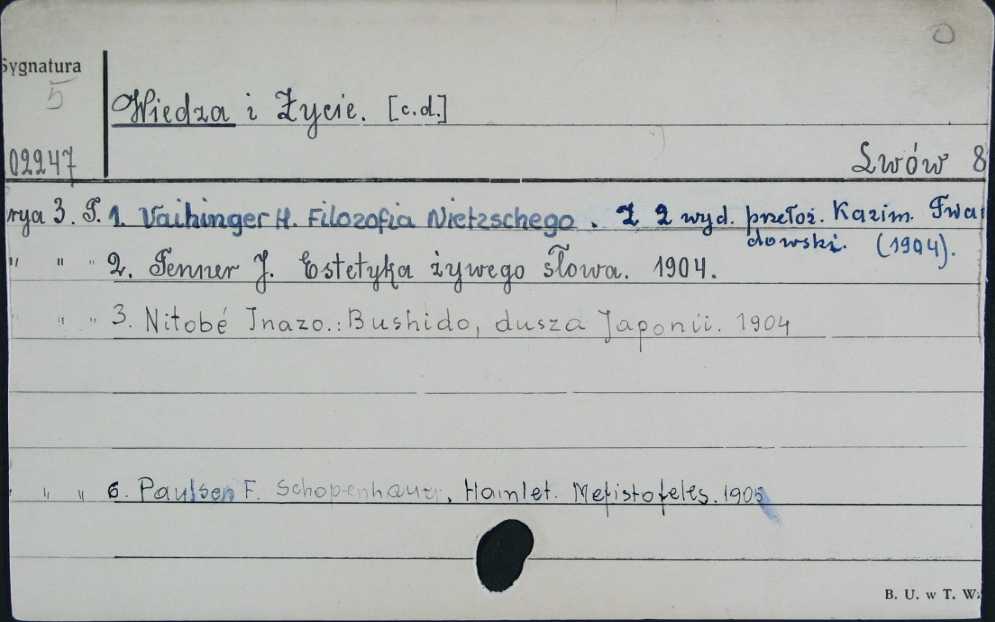 Sygnatura
5
Wiedza i Życie. [c.d.]
02247
Lwów 8
rya 3. T. 1. Vaihinger H. Filozofia Nietzschego. Z 2 wyd. przełoż. Kazim. Twar
dowski. (1904).
" " " 2. Tenner J. Estetyka żywego słowa. 1904.
" " 3. Nitobé Inazo.: Bushido, dusza Japonii. 1904
" " " 6. Paulsen F. Schopenhauer, Hamlet. Mefistofeles. 1905
B. U. w T. W.